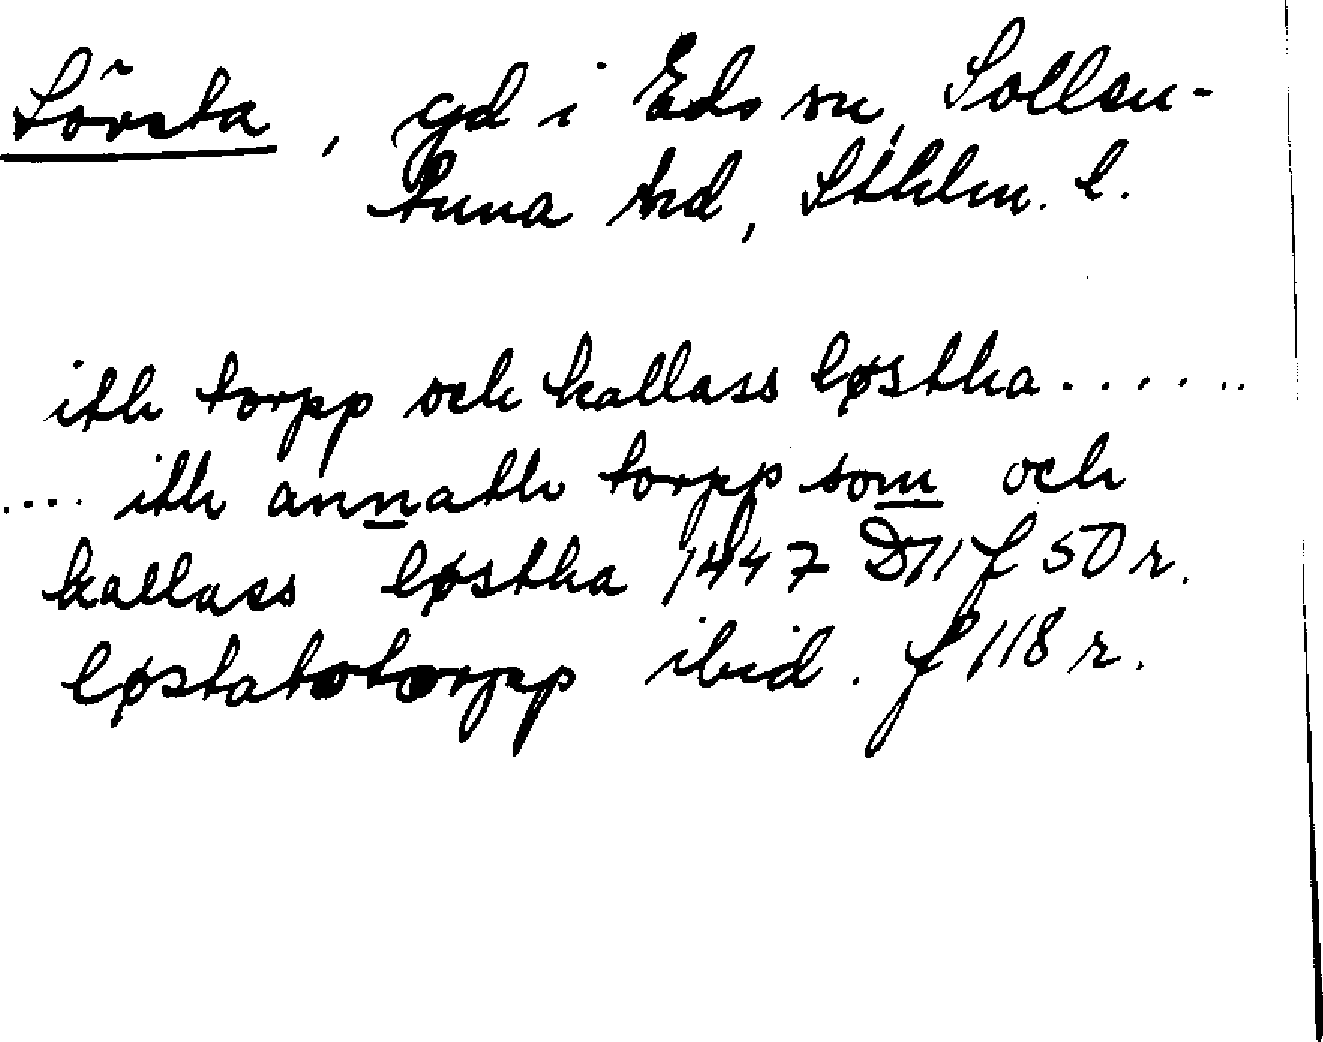 Lövsta, gd i Eds sn, Sollen-
tuna hd, Sthlm. l.
ith torpp och kallass løstha.......
.... ith annath torpp som och
kallass løstha 1447 D11 f 50 r.
løstatotorpp ibid. f 118 r.